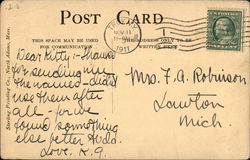 2-8
POST CARD
THIS SPACE MAY BE USED FOR COMMUNICATION
THE ADDRESS ONLY TO BE WRITTEN HERE
NOV 11
11-
1911
1
Dear Kitty:- Thanks
for sending me
the names - didn't
use them after
all - for we
found something
else better to do.
Love. K.G.
Mrs. F. A. Robinson
Lawton
Mich.
Sterling Printing Co., North Adams, Mass.